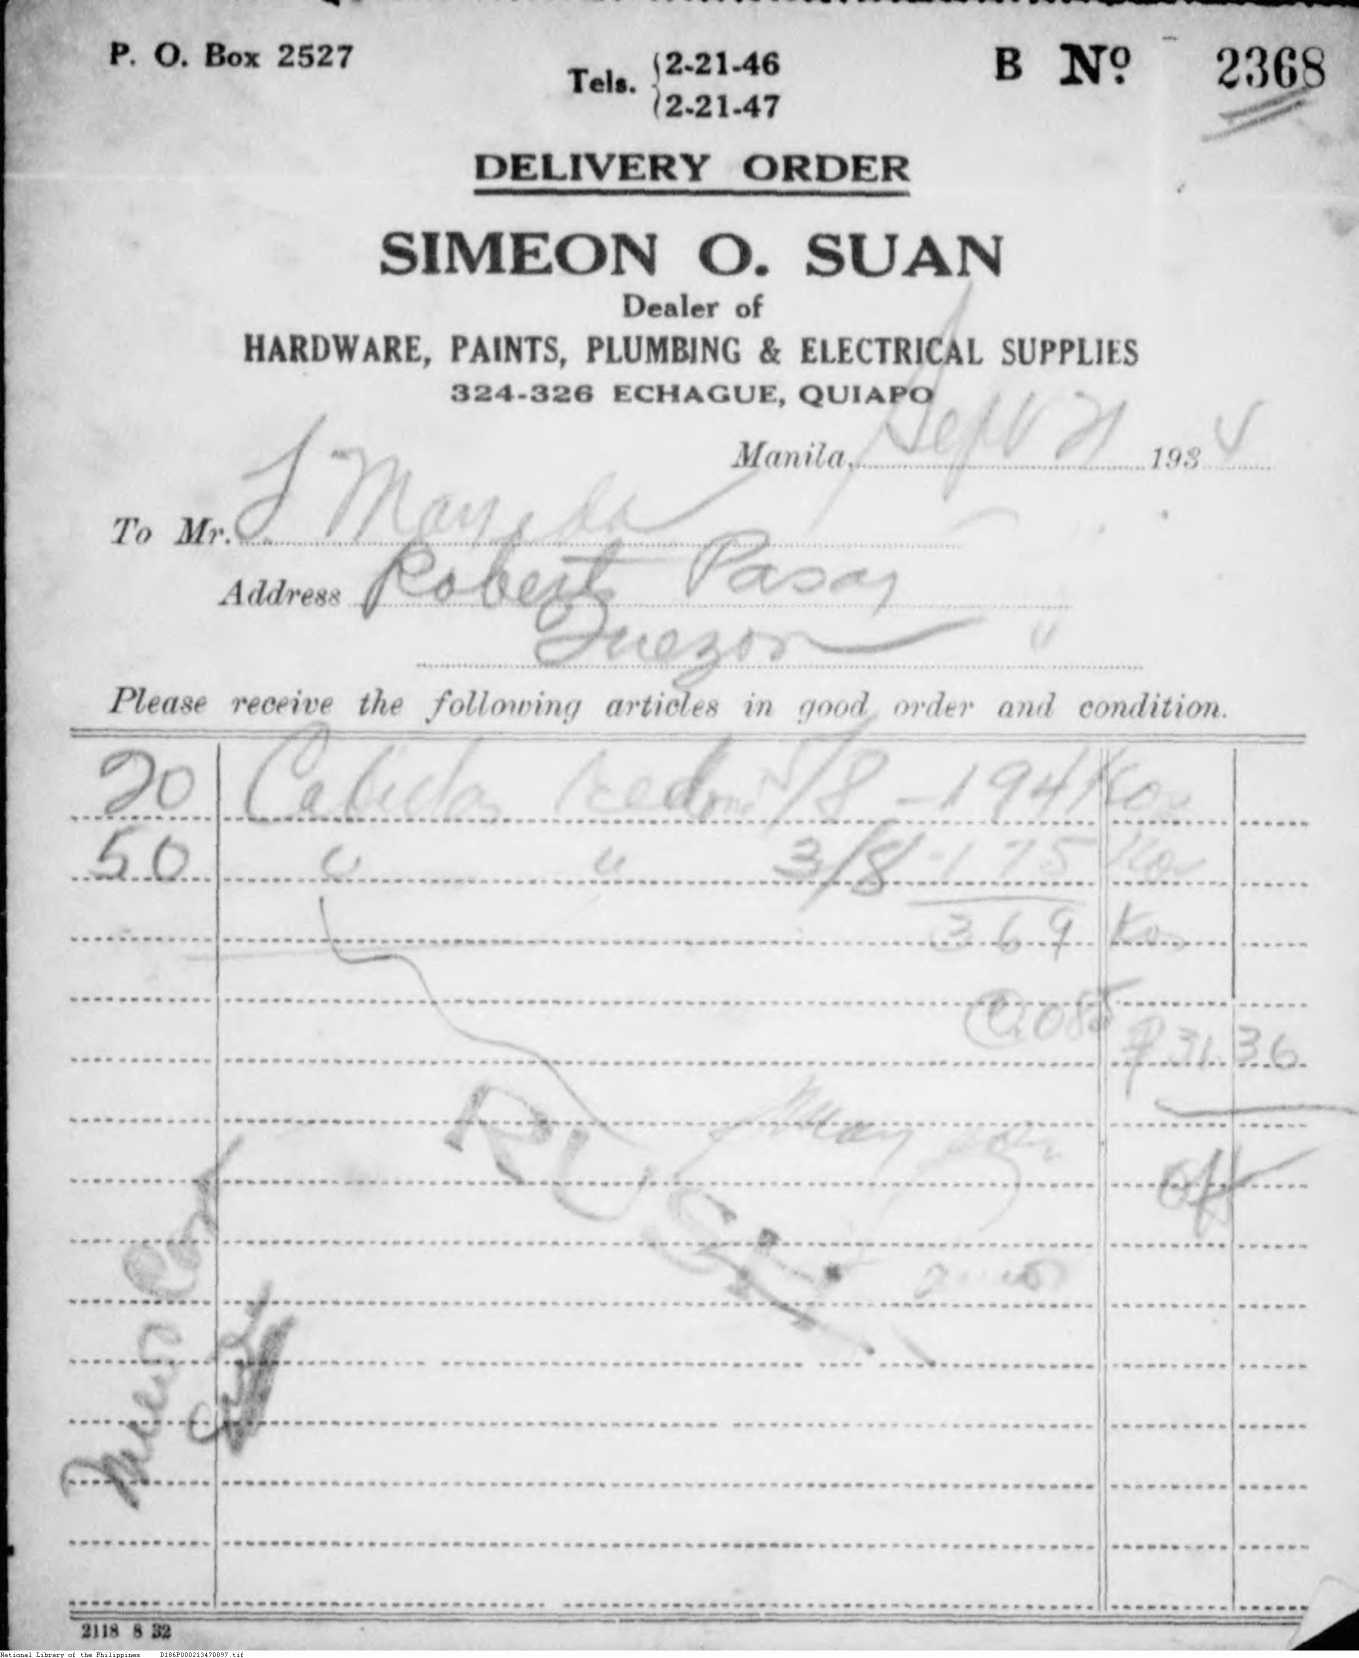 P. O. Box 2527
Tels. 2-21-46
2-21-47
B No. 2368
DELIVERY ORDER
SIMEON O. SUAN
Dealer of
HARDWARE, PAINTS, PLUMBING & ELECTRICAL SUPPLIES
324-326 ECHAGUE, QUIAPO
Manila, Sept 21 1934
To Mr.
Address Robert Pasay
Quezon "
Please receive the following articles in good order and condition.
20 Cabillas 5/8 - 194 Kos
50 " " 3/8 - 175 Kos
369 Kos
@ .085 ₱31.36
RUSH
2118 8 32
National Library of the Philippines D186P000213470897.tif